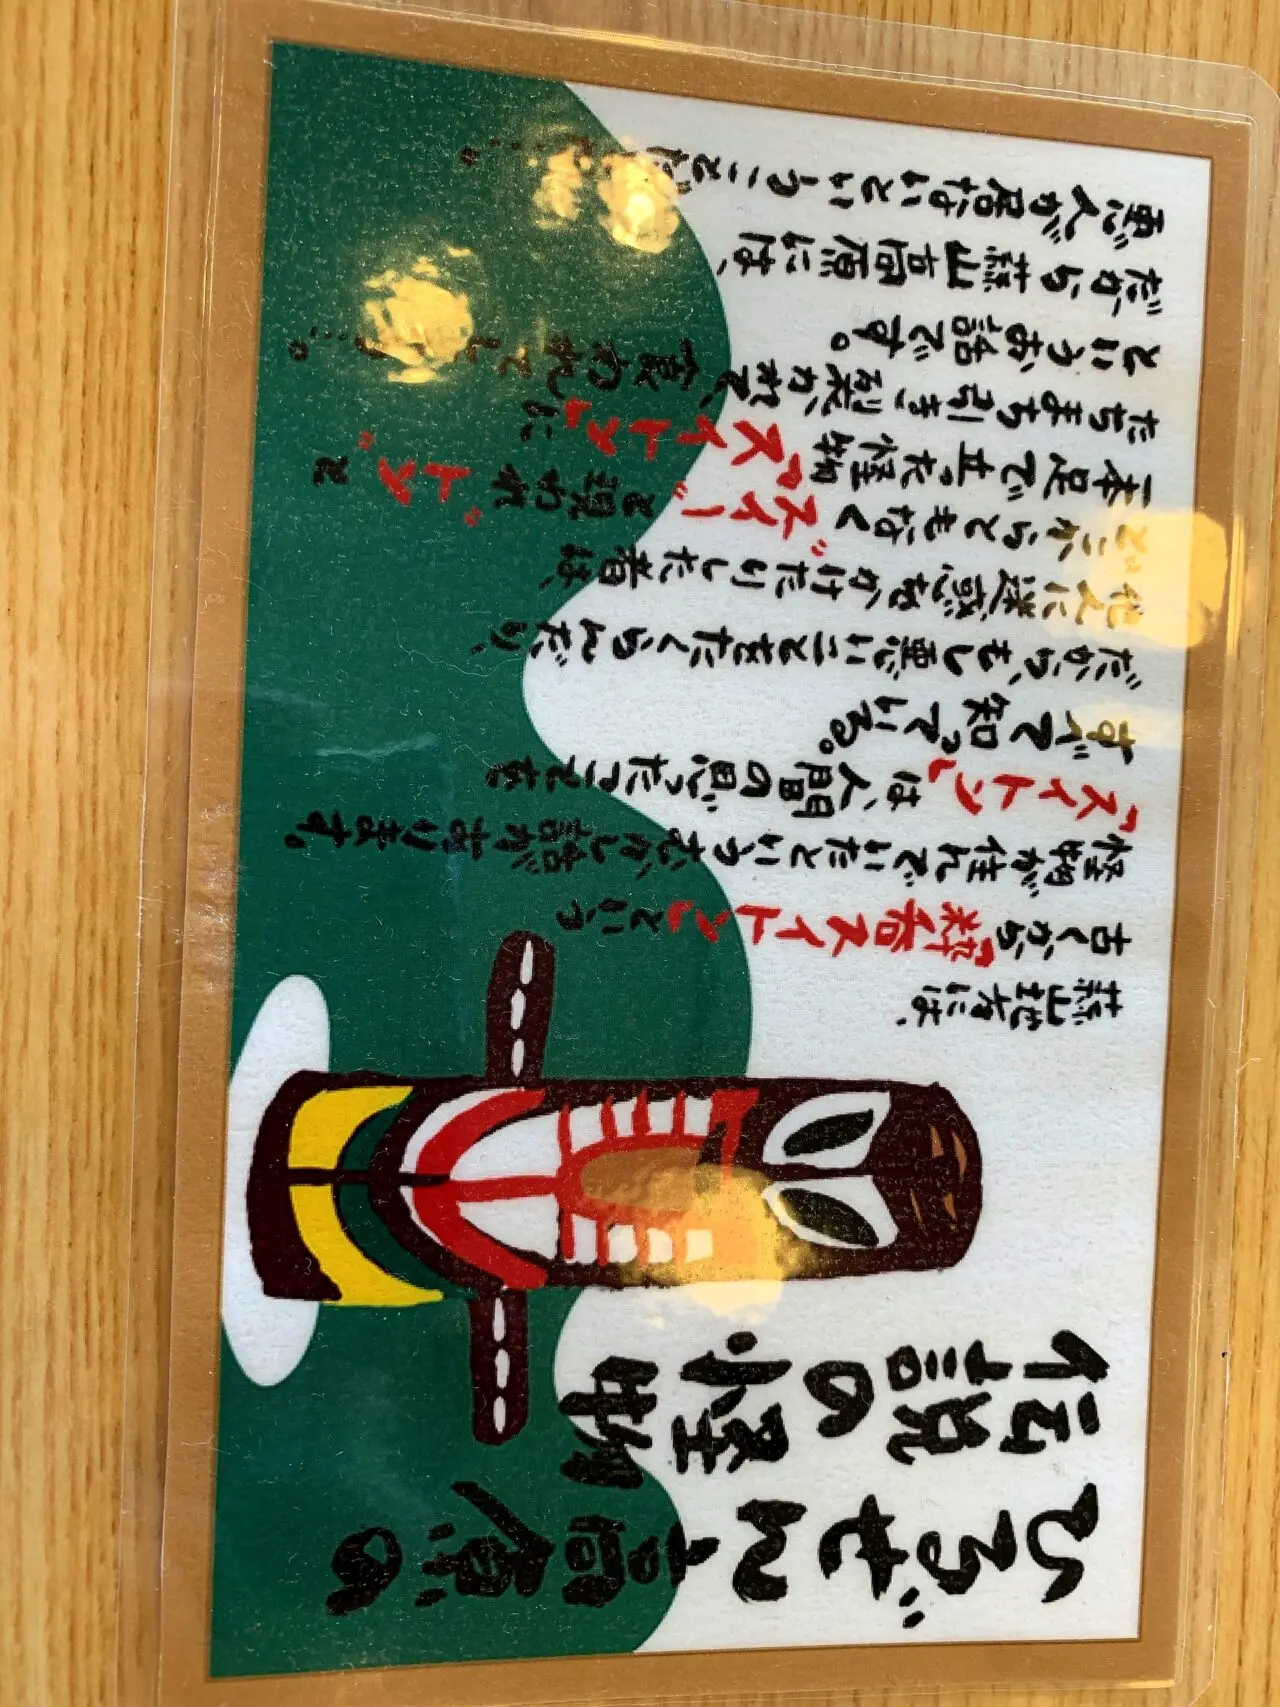 ひるぜん高原の
伝説の怪物
蒜山地方には、
古くから「粋呑スイトン」という
怪物が住んでいたというむかし話があります。
「スイトン」は、人間の思ったことを
すべて知っている。
だから、もし悪いことをたくらんだり、
他人に迷惑をかけたりした者は、
どこからともなく“スイー”と現われ“トン”と
一本足で立った怪物「スイトン」に
たちまち引き裂かれて、食われてしまう……。
というお話です。
だから蒜山高原には、
悪人が居ないということ……。